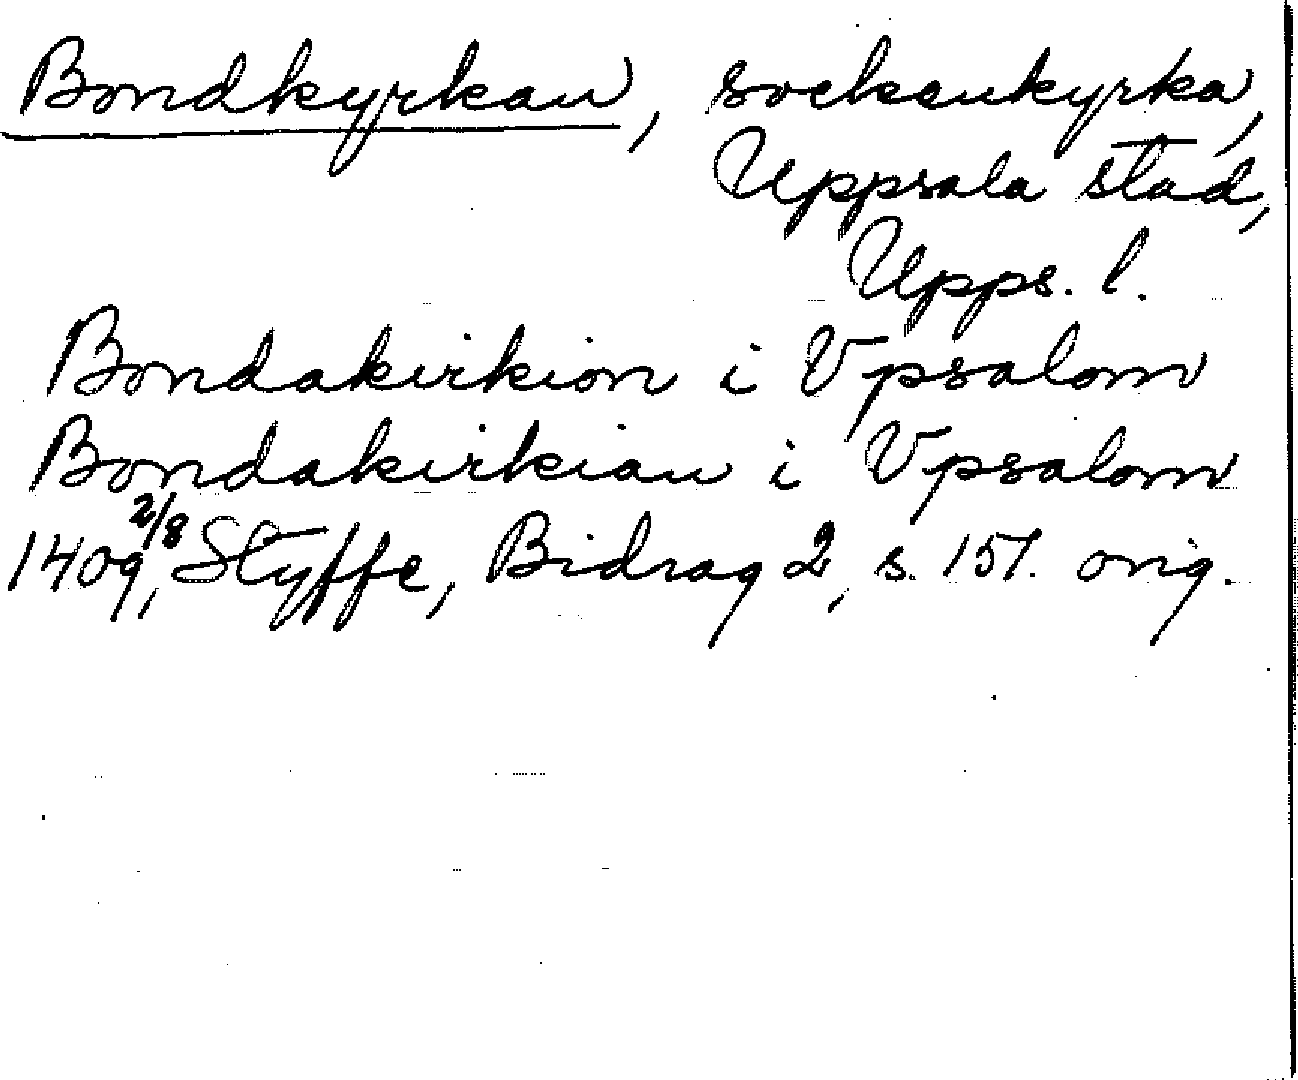 Bondkyrkan, sockenkyrka,
Uppsala stad,
Upps. l.
Bondakirkion i Vpsalom
Bondakirkian i Vpsalom
1409 2/8, Styffe, Bidrag 2, s. 151. orig.